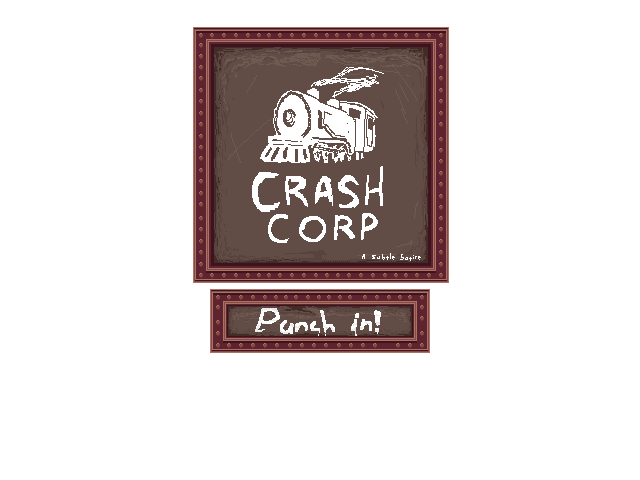 CRASH
CORP
A Subtle Satire
Punch in!